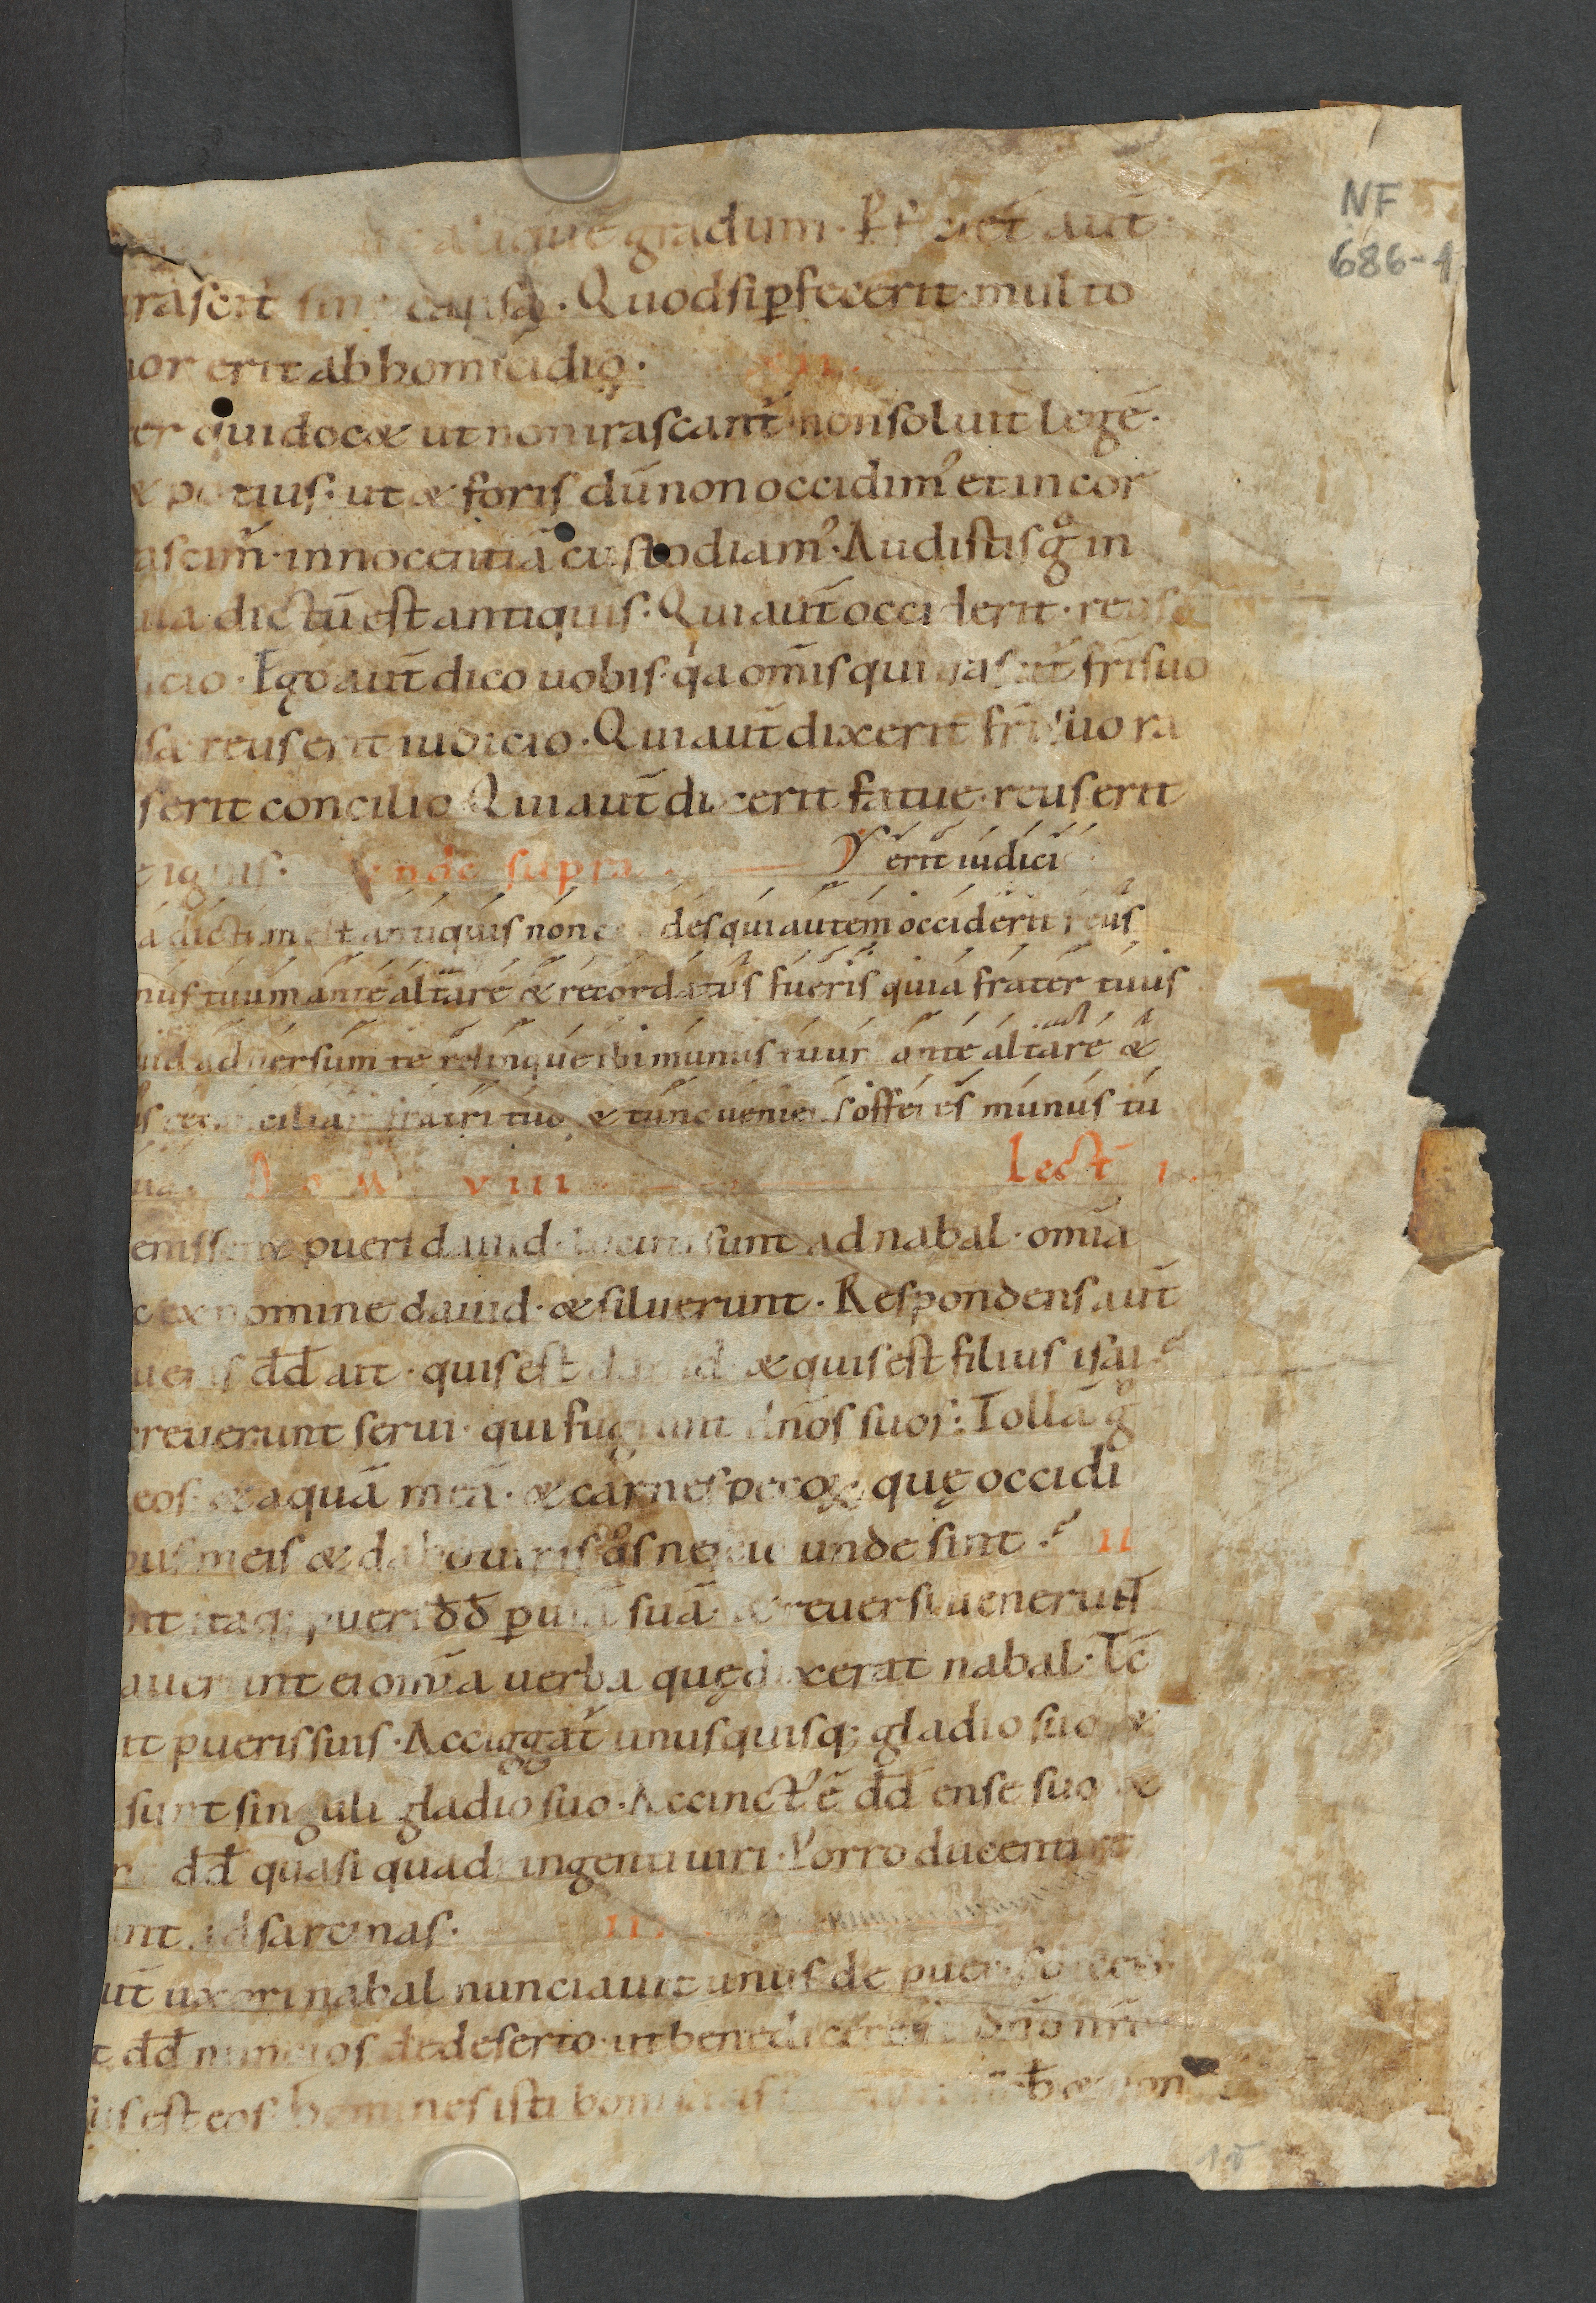 NF
686-1
gradum. aut̄
irascit̄ sine causa. Quod si ꝑfecerit. multo
ior erit ab homicidio.
er qui docet ut non irascant̄. non soluit legē.
& potius: ut & foris dū non occidim᷒ et in cor
ascim̄. innocentiā custodiam᷒. Audistis gͦ in
ua dictū est antiquis. Qui aut̄ occiderit. reus
icio. Ego aut̄ dico uobis. qa om̄is qui irascit̄ fr̄i suo
sa reus erit iudicio. Qui aut̄ dixerit fr̄i suo ra
s erit concilio. Qui aut̄ dixerit fatue. reus erit
e ignis. Unde supra erit iudici
a dictum est antiquis non des qui autem occiderit reus
nus tuum ante altare & recordatus fueris quia frater tuus
uid aduersum te relinque ibi munus tuum ante altare &
reconciliari fratri tuo & tunc ueniens offeres munus tu
Dom VIII Lect I
enissent pueri dauid. locuti sunt ad nabal. om̄ia
c ex nomine dauid. & siluerunt. Respondens aut̄
ueris dd̄ ait. quis est dauid. & quis est filius isai?
creuerunt serui. qui fugiunt dn̄os suos: Tollā gͦ
eos. & aquā meā. & carnes pecoꝝ. quę occidi
bus meis & dabo uiris qͦs nescio unde sint? II
nt itaq; pueri dd̄ ꝑ uiā suā. & reuersi uenerunt
auerunt ei om̄ia uerba quę dixerat nabal. Tc̄
it pueris suis. Acciggat̄ unusquisq; gladio suo &
sunt singuli gladio suo. Accinct᷒ ē dd̄ ense suo &
dd̄ quasi quadringenti uiri. Porro ducenti
nt ad sarcinas. III
ut̄ uxori nabal nunciauit unus de pueris
t dd̄ nuncios de deserto. ut benedicerent dn̄o nr̄o
us est eos. homines isti boni